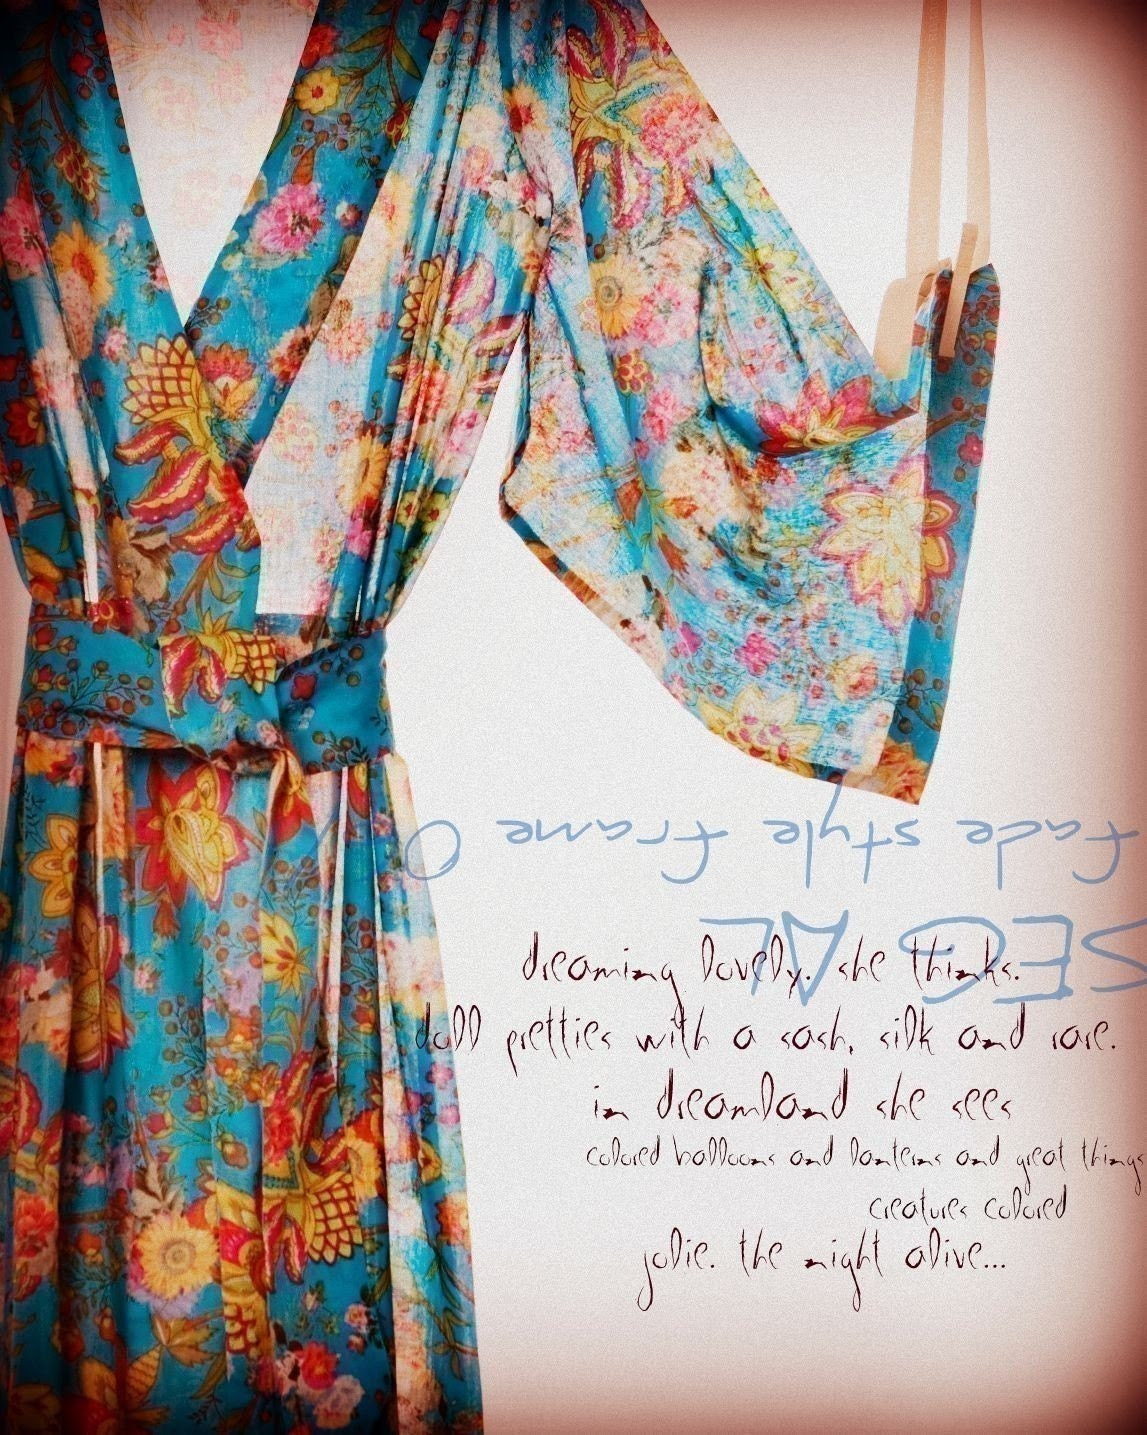 fade style frame
SEGAL
dreaming lovely. she thinks.
doll pretties with a sash, silk and rare.
in dreamland she sees
colored balloons and lanterns and great things
creatures colored
jolie. the night alive...